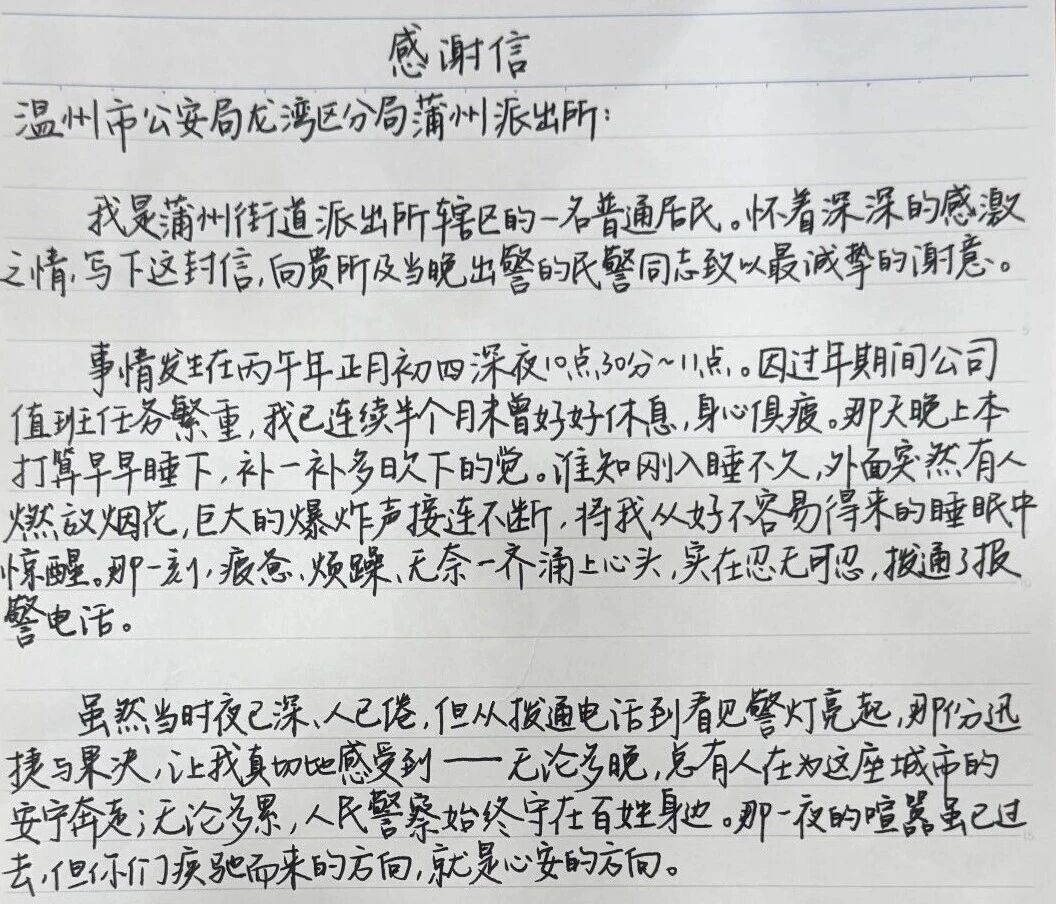 感谢信
温州市公安局龙湾区分局蒲州派出所:
我是蒲州街道派出所辖区的一名普通居民。怀着深深的感激
之情,写下这封信,向贵所及当晚出警的民警同志致以最诚挚的谢意。
事情发生在丙午年正月初四深夜10点30分~11点。因过年期间公司
值班任务繁重,我已连续半个月未曾好好休息,身心俱疲。那天晚上本
打算早早睡下,补一补多日欠下的觉。谁知刚入睡不久,外面突然有人
燃放烟花,巨大的爆炸声接连不断,将我从好不容易得来的睡眠中
惊醒。那一刻,疲惫、烦躁、无奈一齐涌上心头,实在忍无可忍,拨通了报
警电话。
虽然当时夜已深、人已倦,但从拨通电话到看见警灯亮起,那份迅
捷与果决,让我真切地感受到——无论多晚,总有人在为这座城市的
安宁奔走;无论多累,人民警察始终守在百姓身边。那一夜的喧嚣虽已过
去,但你们疾驰而来的方向,就是心安的方向。